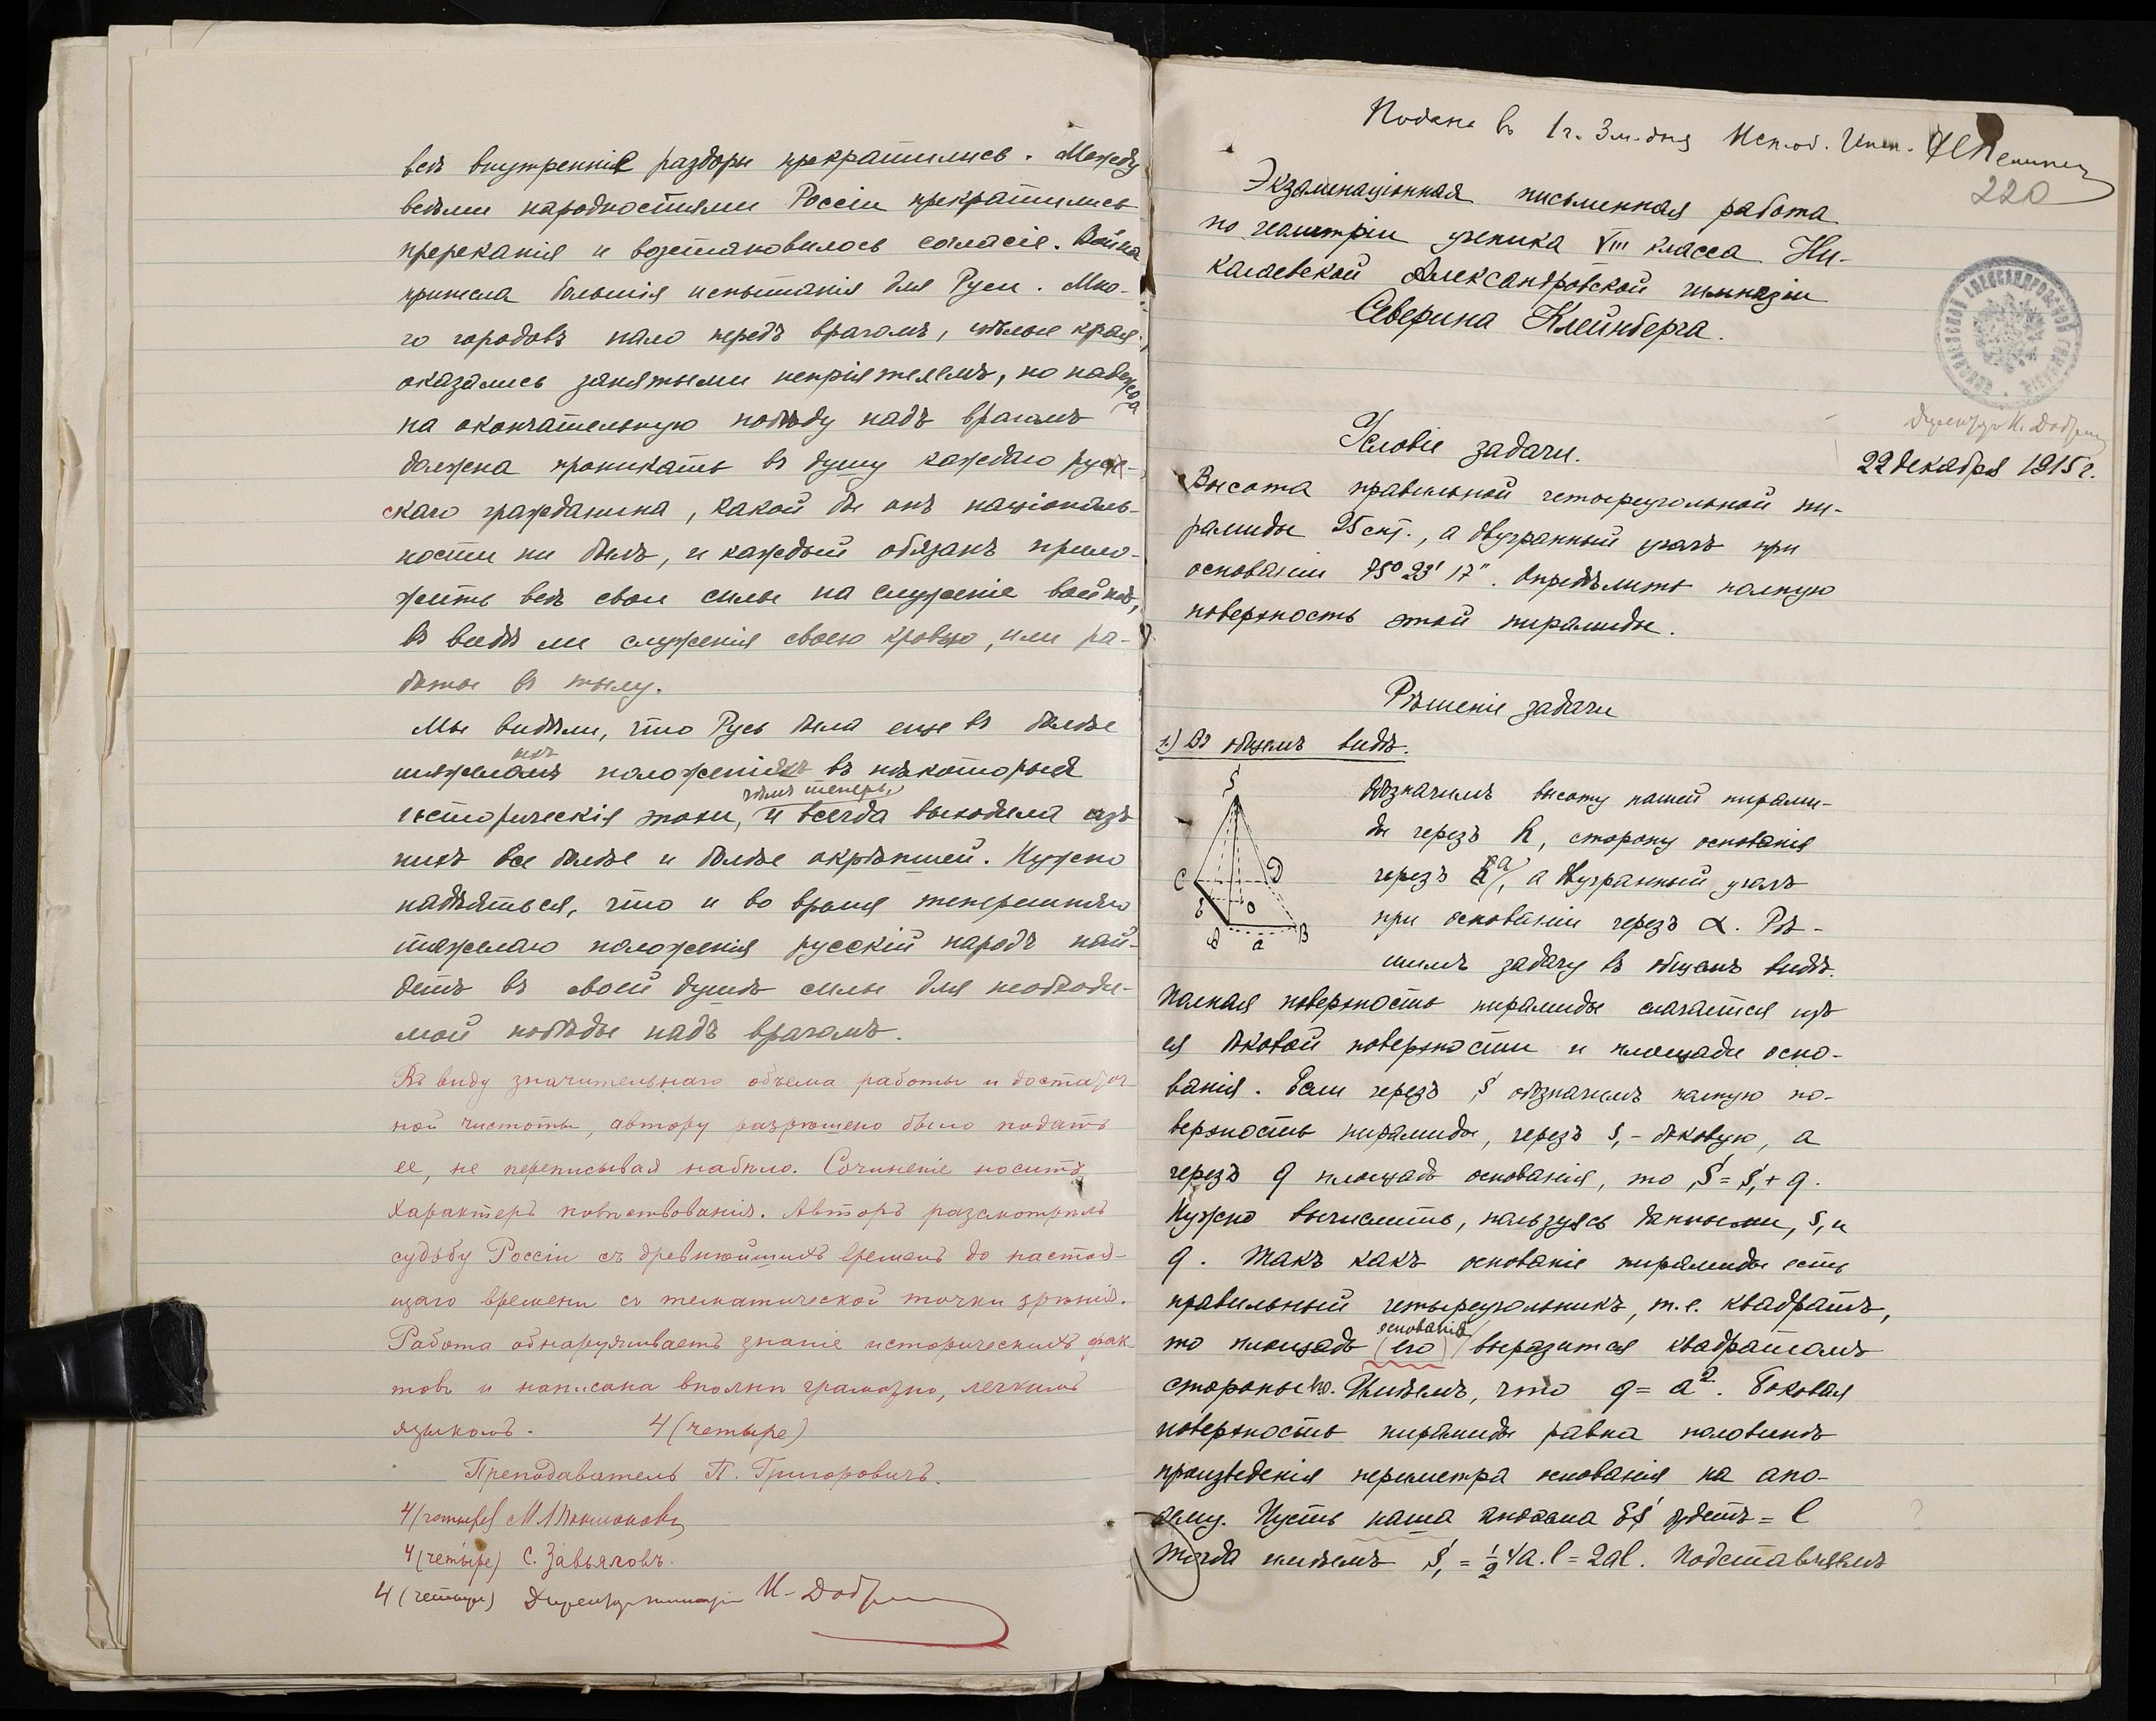 всѣ внутреннія раздоры прекратились. Между
всѣми народностями Россіи прекратились
пререканія и возстановилось согласіе. Война
принесла большія испытанія для Руси. Мно-
го городовъ пало передъ врагомъ, цѣлые края
оказались занятыми непріятелемъ, но надежда
на окончательную побѣду надъ врагомъ
должна проникать въ душу каждаго рус-
скаго гражданина, какой бы онъ національ-
ности ни былъ, и каждый обязанъ прило-
жить всѣ свои силы на служеніе войнѣ,
въ видѣ ли служенія своею кровью, или ра-
боты въ тылу.
Мы видѣли, что Русь была еще въ болѣе
тяжелыхъ положеніяхъ въ нѣкоторыя
чѣмъ теперь,
историческія эпохи, и всегда выходила изъ
нихъ все болѣе и болѣе окрѣпшей. Нужно
надѣяться, что и во время теперешняго
тяжелаго положенія русскій народъ най-
детъ въ своей душѣ силы для необходи-
мой побѣды надъ врагомъ.
Въ виду значительнаго объема работы и достаточ-
ной чистоты, автору разрѣшено было подать
ее, не переписывая набѣло. Сочиненіе носитъ
характеръ повѣствованія. Авторъ разсмотрѣлъ
судьбу Россіи съ древнѣйшихъ временъ до настоя-
щаго времени съ тематической точки зрѣнія.
Работа обнаруживаетъ знаніе историческихъ фак
товъ и написана вполнѣ грамотно, легкимъ
языкомъ. 4 (четыре)
Преподаватель П. Григоровичъ.
4 (четыре)
4 (четыре) С. Завьяловъ.
4 (четыре) Директоръ гимназіи И. Добр
Подана въ 1 ч. 3 м. дня
220
Экзаменаціонная письменная работа
по геометріи ученика VIII класса Ни-
колаевской Александровской гимназіи
Северина Клейнберга.
Директоръ И. Добр
22 декабря 1915 г.
Условіе задачи.
Высота правильной четыреугольной пи-
рамиды 25 снт., а двугранный уголъ при
основаніи 75° 23' 17". Опредѣлить полную
поверхность этой пирамиды.
Рѣшеніе задачи
1) Въ общемъ видѣ.
S
C D
E O
A a B
Обозначимъ высоту нашей пирами-
ды черезъ h, сторону основанія
черезъ a, а двугранный уголъ
при основаніи черезъ α. Рѣ-
шимъ задачу въ общемъ видѣ.
Полная поверхность пирамиды слагается изъ
ея боковой поверхности и площади осно-
ванія. Если черезъ S обозначимъ полную по-
верхность пирамиды, черезъ S₁ - боковую, а
черезъ q площадь основанія, то S = S₁ + q.
Нужно вычислить, пользуясь данными, S₁ и
q. Такъ какъ основаніе пирамиды есть
правильный четыреугольникъ, т.е. квадратъ,
основанія
то площадь (его) выразится квадратомъ
стороны его. Имѣемъ, что q = a². Боковая
поверхность пирамиды равна половинѣ
произведенія периметра основанія на апо-
ѳему. Пусть наша апоѳема ES будетъ = l
Тогда имѣемъ S₁ = ½ 4a. l = 2al. Подставляемъ